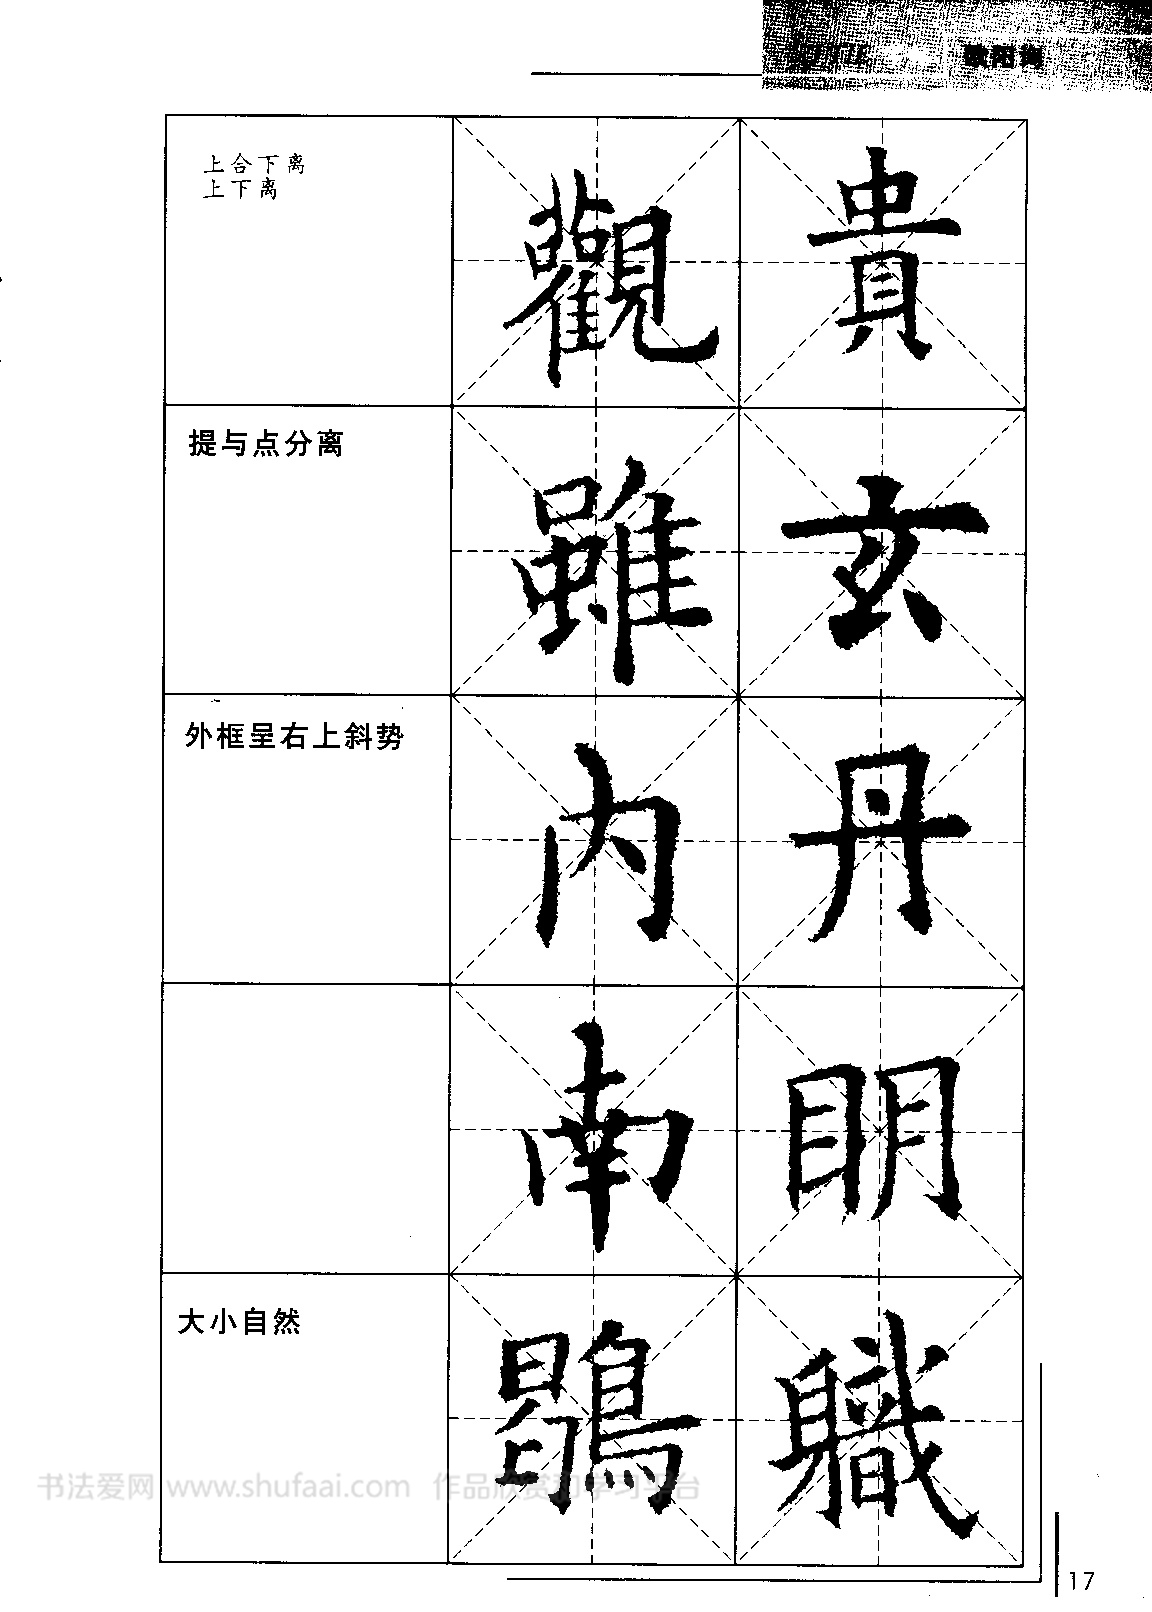 欧阳询
上合下离
上下离
觀 貴
提与点分离
雖 玄
外框呈右上斜势
内 丹
南 明
大小自然
鶡 職
书法爱网 www.shufaai.com 作品欣赏和学习平台
17